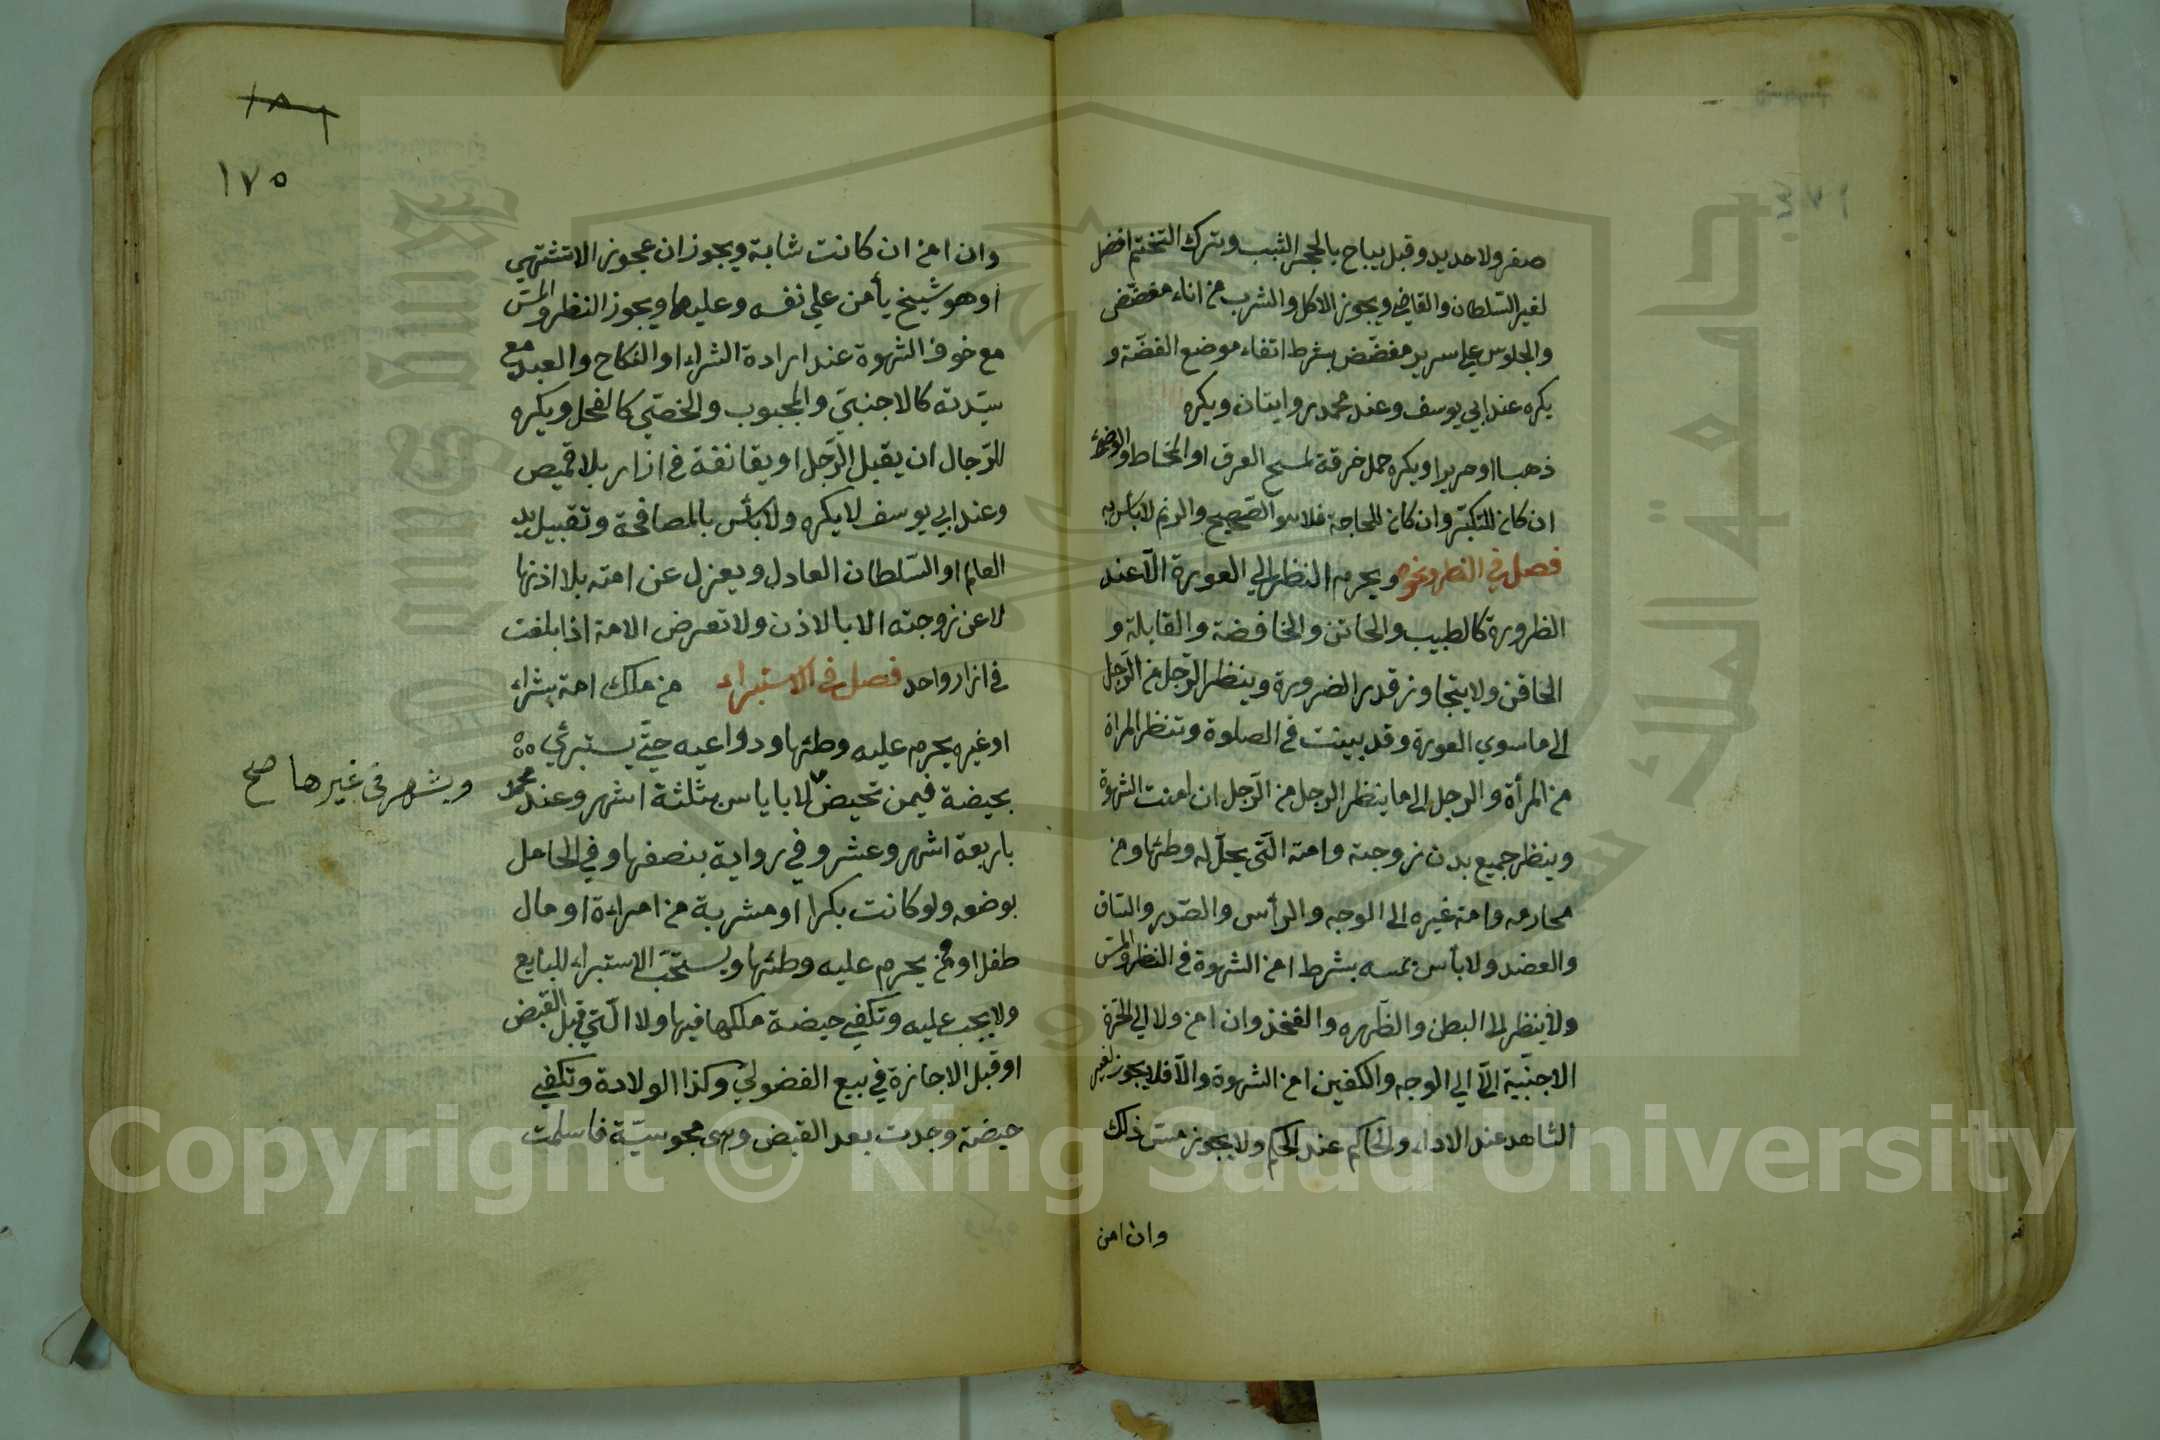 صفر ولا حديد وقيل يباح بالحجر اليشب وترك التختم افضل
لغير السلطان والقاضي ويجوز الاكل والشرب من اناء مفضض
والجلوس على سرير مفضض بشرط اتقاء موضع الفضة و
يكره عند ابي يوسف وعند محمد روايتان ويكره
ذهبا او حريرا ويكره حمل خرقة لمسح العرق او المخاط والوضوء
ان كان للتكبر وان كان للحاجة فلا هو الصحيح والرتم لا بأس به
فصل في النظر ونحوه ويحرم النظر الى العورة الا عند
الظرورة كالطبيب والخاتن والخافضة والقابلة و
الحاقن ولا يتجاوز قدر الضرورة وينظر الرجل من الرجل
الى ما سوى العورة وقد بينت في الصلوة وتنظر المراة
من المرأة والرجل الى ما ينظر الرجل من الرجل ان امنت الشهوة
وينظر جميع بدن زوجته وامته التى يحل له وطئها ومن
محارمه وامة غيره الى الوجه والرأس والصدر والساق
والعضد ولا بأس بمسه بشرط امن الشهوة في النظر والمس
ولا ينظر الى البطن والظهر والفخذ وان امن ولا الى الحرة
الاجنبية الا الى الوجه والكفين امن الشهوة والا فلا يجوز لغير
الشاهد عند الاداء والحاكم عند الحكم ولا يجوز مس ذلك
وان امن
١٨٦
١٧٥
وان امن ان كانت شابة ويجوز ان عجوز الا تشتهى
او هو شيخ يأمن على نفسه وعليها ويجوز النظر والمس
مع خوف الشهوة عند ارادة الشراء او النكاح والعبد مع
سيدته كالاجنبي والمجبوب والخصي كالفحل ويكره
للرجال ان يقبل الرجل او يعانقه في ازار بلا قميص
وعند ابي يوسف لا يكره ولا بأس بالمصافحة وتقبيل يد
العالم او السلطان العادل ويعزل عن امته بلا اذنها
لا عن زوجته الا بالاذن ولا تعرض الامة اذا بلغت
في ازار واحد فصل في الاستبراء من ملك امة بشراء
او غيره يحرم عليه وطئها ودواعيه حتى يستبرئ
بحيضة فيمن تحيض لا باياس بثلثة اشهر وعند محمد
باربعة اشهر وعشر وفي رواية بنصفها وفي الحامل
بوضعه ولو كانت بكرا او مشرية من امراءة او مال
طفل او ممن يحرم عليه وطئها ويستحب الاستبراء للبايع
ولا يجب عليه وتكفي حيضة ملكها فيها ولا التي قبل القبض
او قبل الاجازة في بيع الفضولي وكذا الولادة وتكفي
حيضة وجدت بعد القبض وهى مجوسية فاسلمت
وبشهر في غيرها صح
Copyright © King Saud University